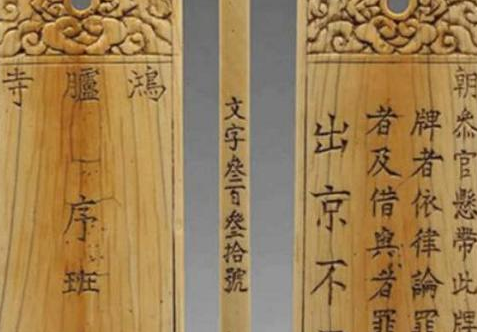 鴻臚寺
序班
文字叄百叄拾號
朝叅官懸帶此牌
牌者依律論罪
者及借與者罪
出京不